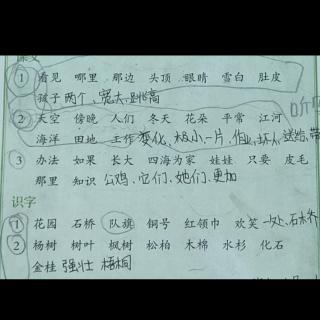 课文
① 看见 哪里 那边 头顶 眼睛 雪白 肚皮
孩子 两个、宽大、跳高
② 天空 傍晚 人们 冬天 花朵 平常 江河
海洋 田地 工作 变化、极小、一片、作业、坏人、送给、带
③ 办法 如果 长大 四海为家 娃娃 只要 皮毛
那里 知识 公鸡、它们、她们、更加
识字
① 花园 石桥 队旗 铜号 红领巾 欢笑 一处、石桥
② 杨树 树叶 枫树 松柏 木棉 水杉 化石
金桂 强壮 梧桐